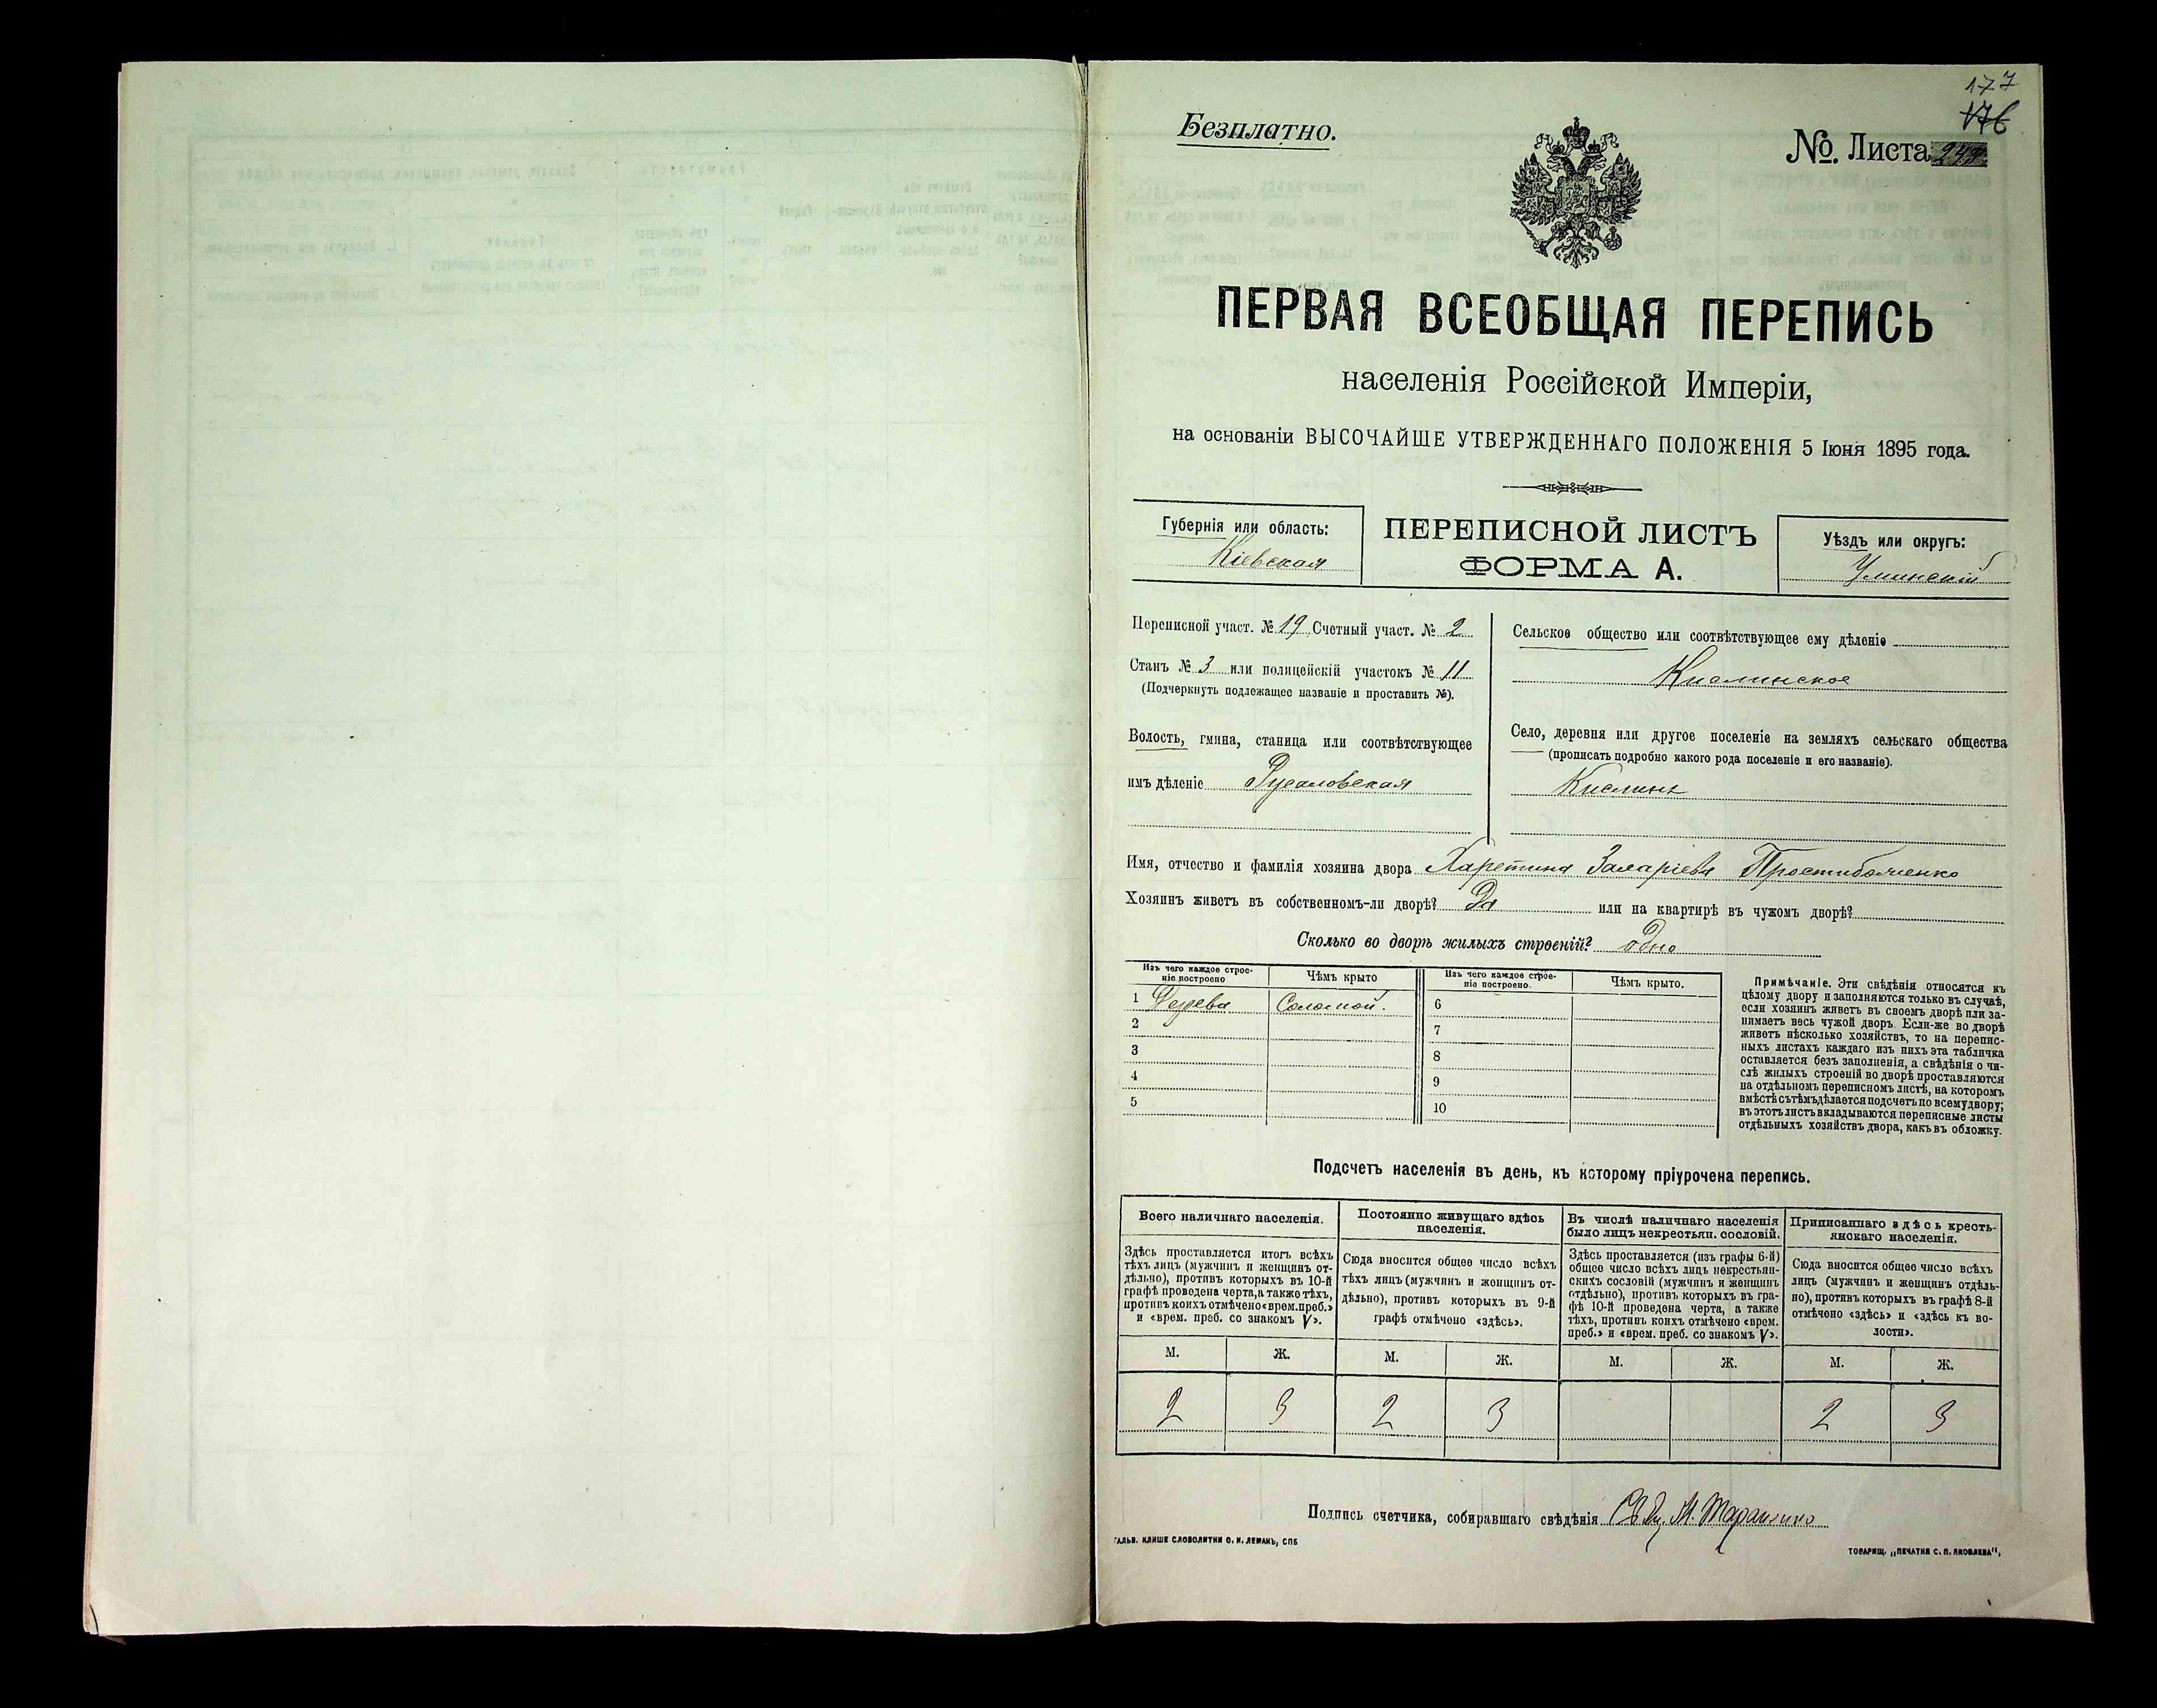 177
176
Безплатно.
№. Листа
ПЕРВАЯ ВСЕОБЩАЯ ПЕРЕПИСЬ
населенія Россійской Имперіи,
на основаніи ВЫСОЧАЙШЕ УТВЕРЖДЕННАГО ПОЛОЖЕНІЯ 5 Іюня 1895 года.
Губернія или область:
Кіевская
ПЕРЕПИСНОЙ ЛИСТЪ
ФОРМА А.
Уѣздъ или округъ:
Уманскій
Переписной участ. № 19 Счетный участ. № 2
Станъ № 3 или полицейскій участокъ № 11
(Подчеркнуть подлежащее названіе и проставить №).
Волость, гмина, станица или соотвѣтствующее
имъ дѣленіе Русаловская
Сельское общество или соотвѣтствующее ему дѣленіе
Кислинское
Село, деревня или другое поселеніе на земляхъ сельскаго общества
(прописать подробно какого рода поселеніе и его названіе).
Кислинъ
Имя, отчество и фамилія хозяина двора Харетина Захаріева
Хозяинъ живетъ въ собственномъ-ли дворѣ? Да или на квартирѣ въ чужомъ дворѣ?
Сколько во дворѣ жилыхъ строеній? одно
Изъ чего каждое строе-
ніе построено
Чѣмъ крыто
Изъ чего каждое строе-
ніе построено.
Чѣмъ крыто.
1 Дерева Соломой. 6
2 7
3 8
4 9
5 10
Примѣчаніе. Эти свѣдѣнія относятся къ
цѣлому двору и заполняются только въ случаѣ,
если хозяинъ живетъ въ своемъ дворѣ или за-
нимаетъ весь чужой дворъ. Если-же во дворѣ
живетъ нѣсколько хозяйствъ, то на перепис-
ныхъ листахъ каждаго изъ нихъ эта табличка
оставляется безъ заполненія, а свѣдѣнія о чи-
слѣ жилыхъ строеній во дворѣ проставляются
на отдѣльномъ переписномъ листѣ, на которомъ
вмѣстѣ съ тѣмъ дѣлается подсчетъ по всему двору;
въ этотъ листъ вкладываются переписные листы
отдѣльныхъ хозяйствъ двора, какъ въ обложку.
Подсчетъ населенія въ день, къ которому пріурочена перепись.
Всего наличнаго населенія.
Здѣсь проставляется итогъ всѣхъ
тѣхъ лицъ (мужчинъ и женщинъ от-
дѣльно), противъ которыхъ въ 10-й
графѣ проведена черта, а также тѣхъ,
противъ коихъ отмѣчено «врем. преб.»
и «врем. преб. со знакомъ V».
Постоянно живущаго здѣсь
населенія.
Сюда вносится общее число всѣхъ
тѣхъ лицъ (мужчинъ и женщинъ от-
дѣльно), противъ которыхъ въ 9-й
графѣ отмѣчено «здѣсь».
Въ числѣ наличнаго населенія
было лицъ некрестьян. сословій.
Здѣсь проставляется (изъ графы 6-й)
общее число всѣхъ лицъ некрестьян-
скихъ сословій (мужчинъ и женщинъ
отдѣльно), противъ которыхъ въ гра-
фѣ 10-й проведена черта, а также
тѣхъ, противъ коихъ отмѣчено «врем.
преб.» и «врем. преб. со знакомъ V».
Приписаннаго здѣсь кресть-
янскаго населенія.
Сюда вносится общее число всѣхъ
лицъ (мужчинъ и женщинъ отдѣль-
но), противъ которыхъ въ графѣ 8-й
отмѣчено «здѣсь» и «здѣсь къ во-
лости».
М. Ж. М. Ж. М. Ж. М. Ж.
2 3 2 3 2 3
Подпись счетчика, собиравшаго свѣдѣнія М. Тараненко
ГАЛЬВ. КЛИШЕ СЛОВОЛИТНИ О. И. ЛЕМАНЪ, СПБ
ТОВАРИЩ. „ПЕЧАТНЯ С. П. ЯКОВЛЕВА“,